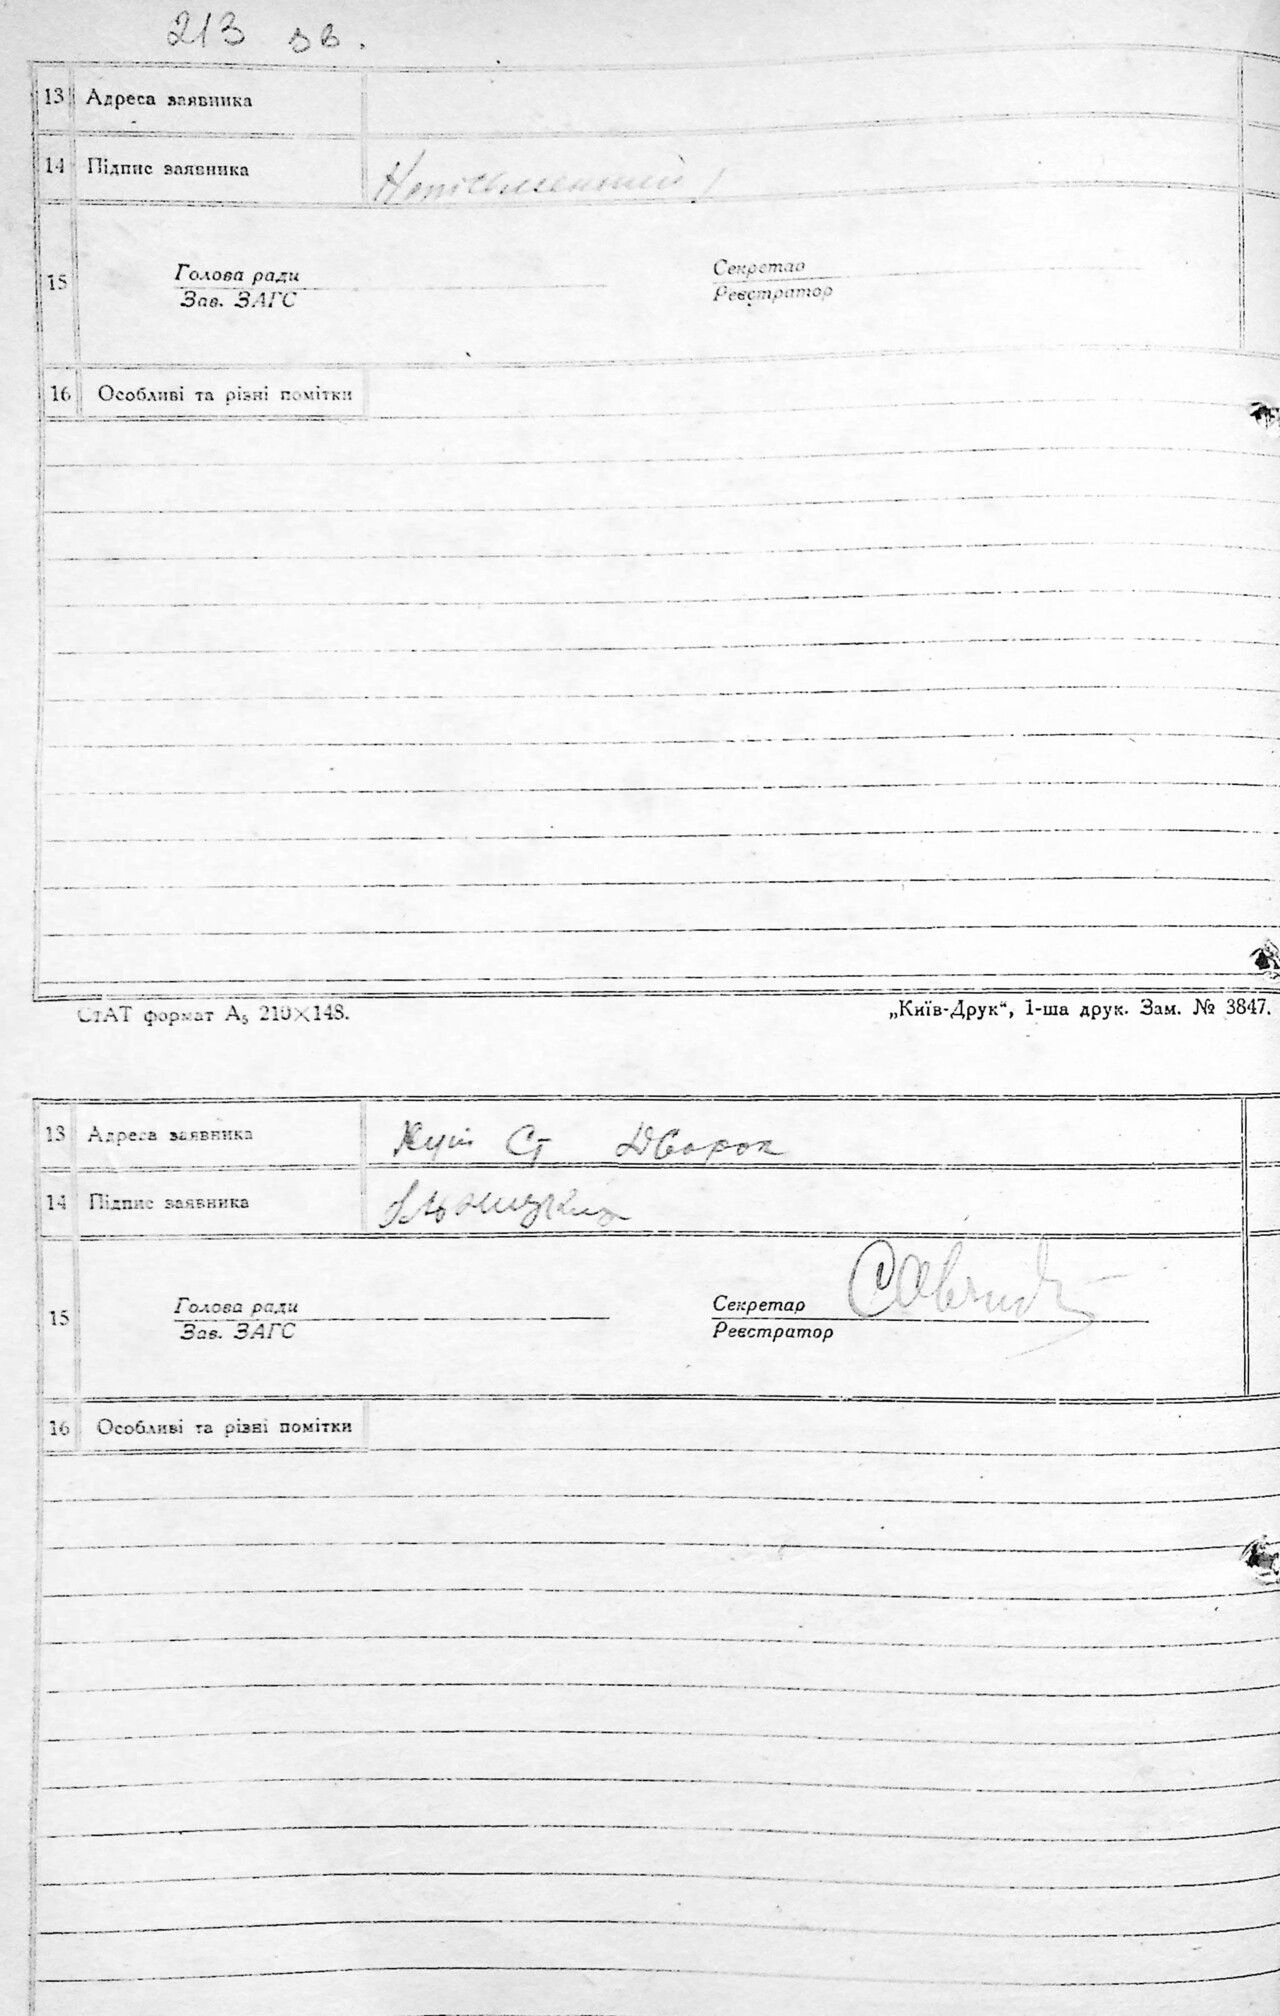 213 зв.
13 Адреса заявника
14 Підпис заявника Неписьменний
15 Голова ради Секретар
Зав. ЗАГС Реєстратор
16 Особливі та різні помітки
СтАТ формат А5 210×148. „Київ-Друк“, 1-ша друк. Зам. № 3847.
13 Адреса заявника Кут Ст Дворок
14 Підпис заявника
15 Голова ради Секретар
Зав. ЗАГС Реєстратор
16 Особливі та різні помітки